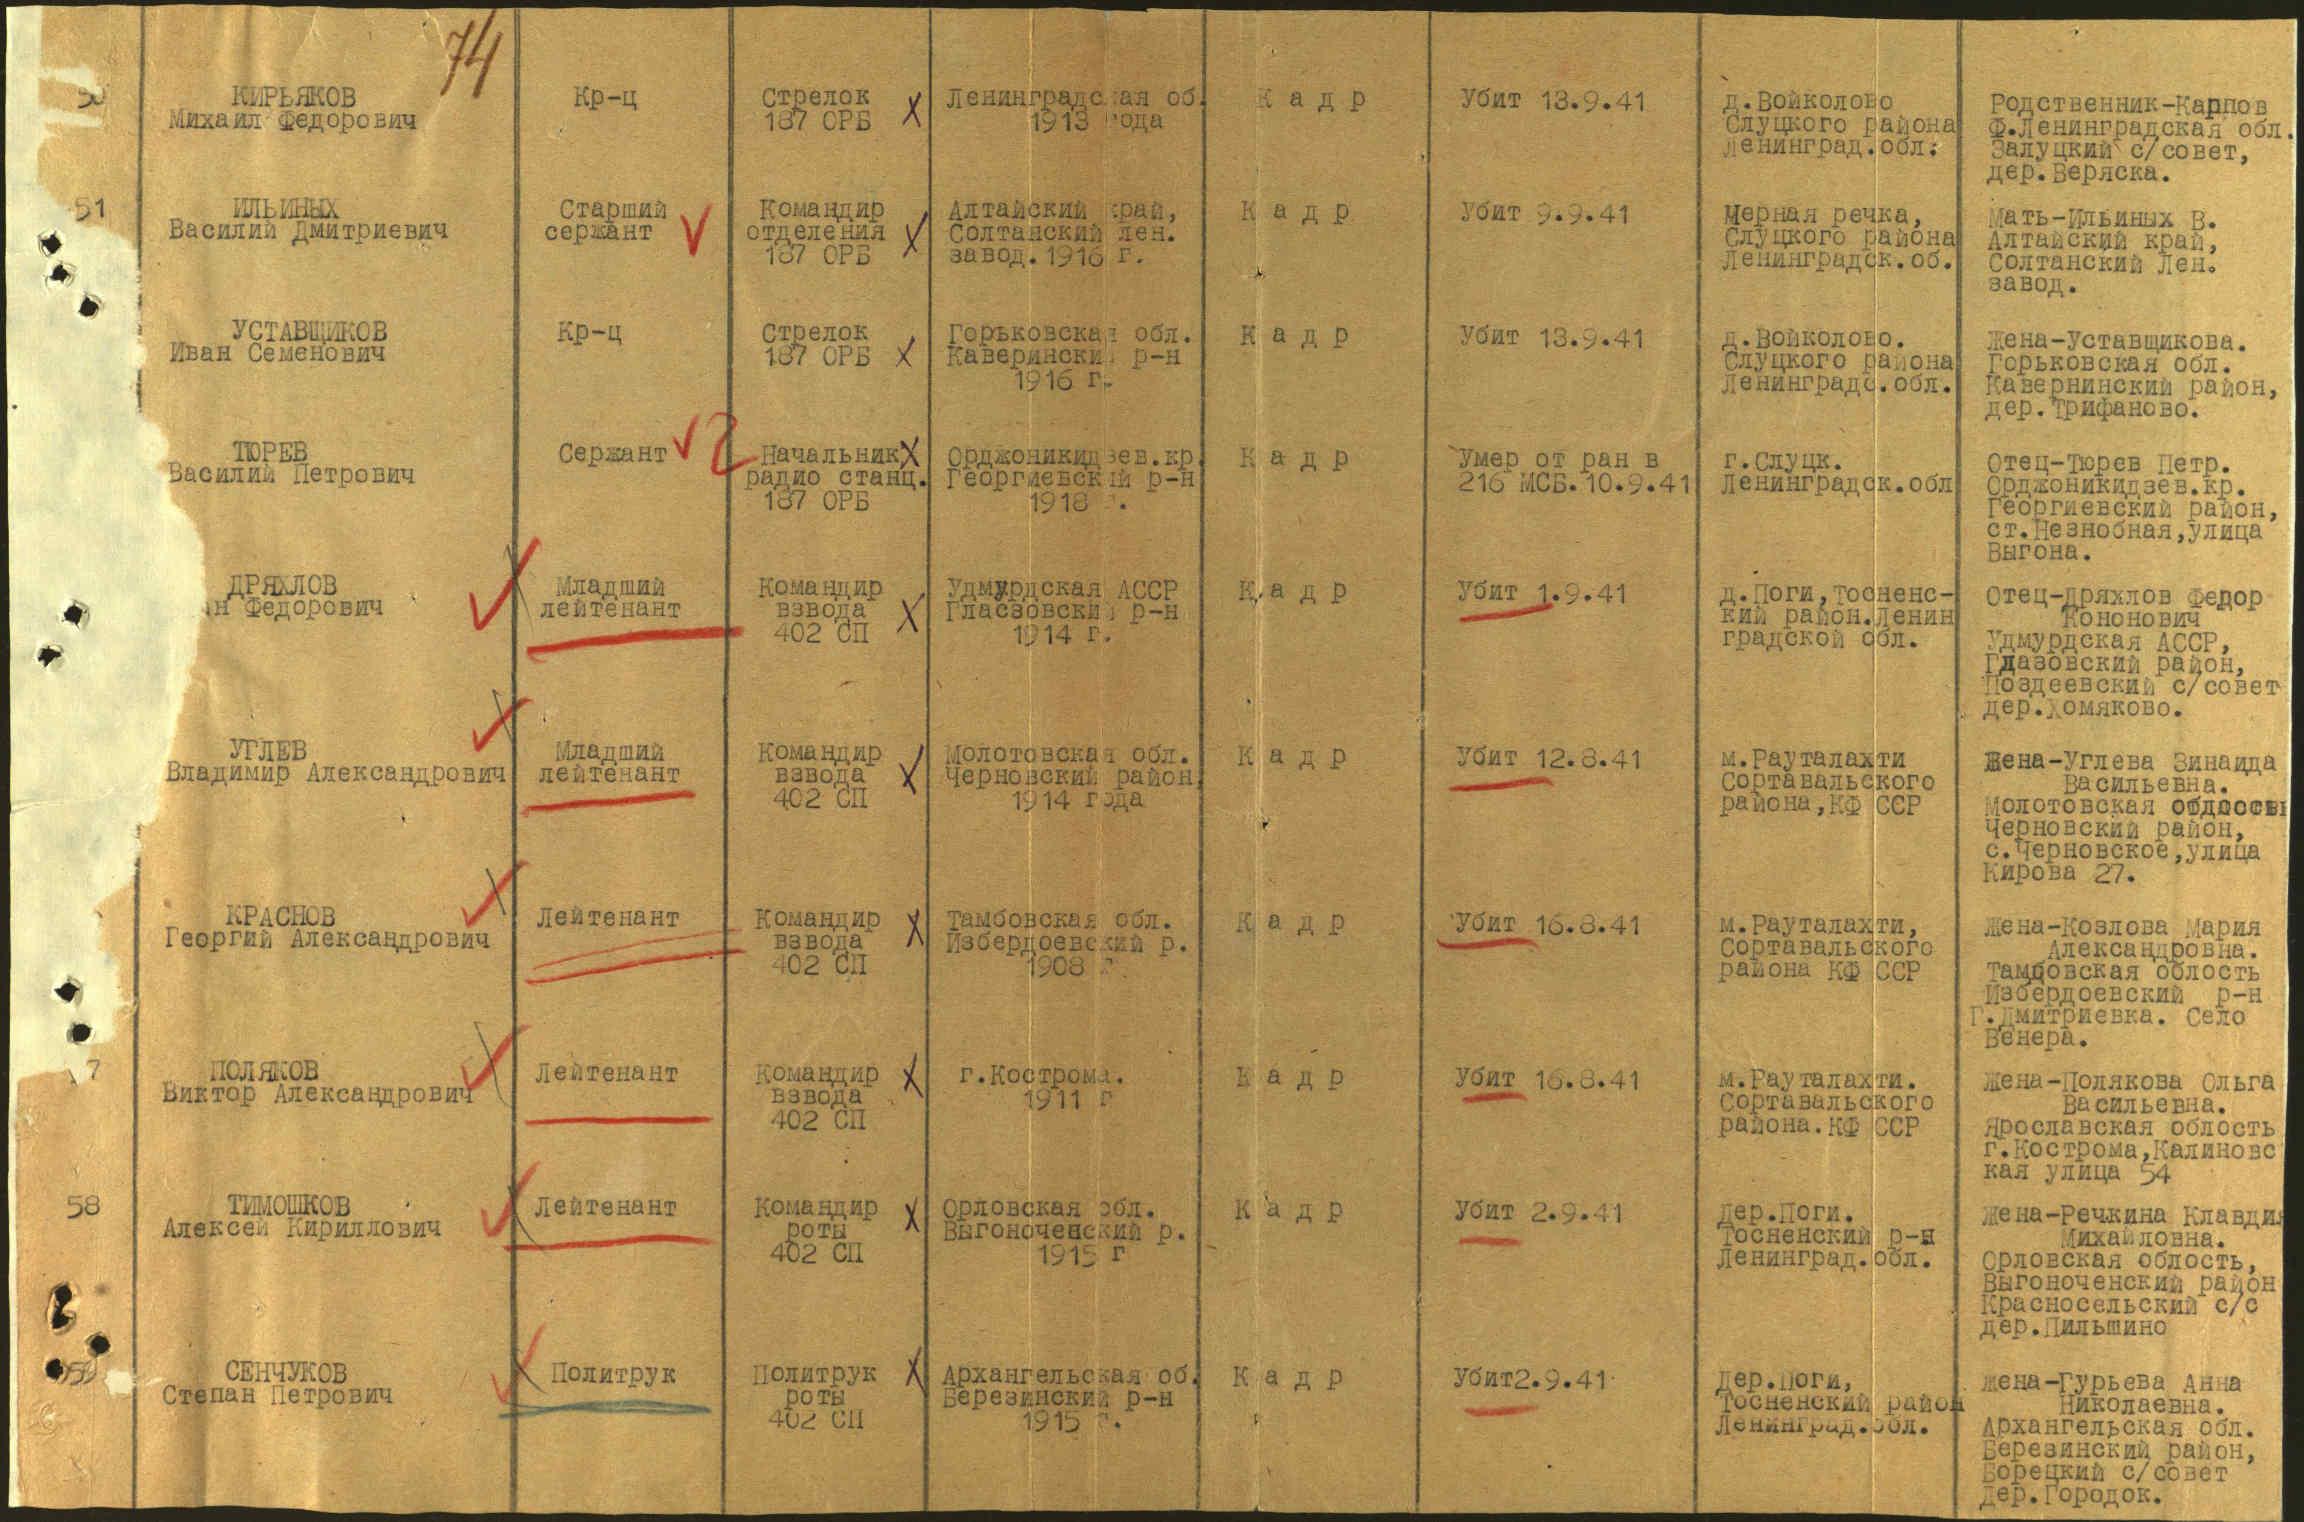 74
КИРЬЯКОВ
Михаил Федорович
Кр-ц
Стрелок
187 ОРБ
Ленинградская об.
1913 года
К а д р
Убит 13.9.41
д.Войколово
Слуцкого района
Ленинград.обл.
Родственник-Карпов
Ф.Ленинградская обл.
Залуцкий с/совет,
дер.Веряска.
51
ИЛЬИНЫХ
Василий Дмитриевич
Старший
сержант
Командир
отделения
187 ОРБ
Алтайский край,
Солтанский лен.
завод.1916 г.
К а д р
Убит 9.9.41
Мерная речка,
Слуцкого района
Ленинградск.об.
Мать-Ильиных В.
Алтайский край,
Солтанский Лен.
завод.
УСТАВЩИКОВ
Иван Семенович
Кр-ц
Стрелок
187 ОРБ
Горьковская обл.
Каверинский р-н
1916 г.
К а д р
Убит 13.9.41
д.Войколово.
Слуцкого района
Ленинградс.обл.
Жена-Уставщикова.
Горьковская обл.
Кавернинский район,
дер.Трифаново.
ТЮРЕВ
Василий Петрович
Сержант
Начальник
радио станц.
187 ОРБ
Орджоникидзев.кр.
Георгиевский р-н
1918 г.
К а д р
Умер от ран в
216 МСБ.10.9.41
г.Слуцк.
Ленинградск.обл
Отец-Тюрев Петр.
Орджоникидзев.кр.
Георгиевский район,
ст.Незнобная,улица
Выгона.
ДРЯХЛОВ
н Федорович
Младший
лейтенант
Командир
взвода
402 СП
Удмурдская АССР
Гласзовский р-н
1914 г.
К а д р
Убит 1.9.41
д.Поги,Тосненс-
кий район.Ленин
градской обл.
Отец-Дряхлов Федор
Кононович
Удмурдская АССР,
Гдазовский район,
Поздеевский с/совет
дер.Хомяково.
УГЛЕВ
Владимир Александрович
Младший
лейтенант
Командир
взвода
402 СП
Молотовская обл.
Черновский район,
1914 года
К а д р
Убит 12.8.41
м.Рауталахти
Сортавальского
района,КФ ССР
Жена-Углева Зинаида
Васильевна.
Молотовская
Черновский район,
с.Черновское,улица
Кирова 27.
КРАСНОВ
Георгий Александрович
Лейтенант
Командир
взвода
402 СП
Тамбовская обл.
Избердоевский р.
1908 г
К а д р
Убит 16.8.41
м.Рауталахти,
Сортавальского
района КФ ССР
Жена-Козлова Мария
Александровна.
Тамбовская область
Избердоевский р-н
Г.Дмитриевка. Село
Венера.
7
ПОЛЯКОВ
Виктор Александрович
Лейтенант
Командир
взвода
402 СП
г.Кострома.
1911 г
К а д р
Убит 16.8.41
м.Рауталахти.
Сортавальского
района.КФ ССР
Жена-Полякова Ольга
Васильевна.
Ярославская облость
г.Кострома,Калиновс
кая улица 54
58
ТИМОШКОВ
Алексей Кириллович
Лейтенант
Командир
роты
402 СП
Орловская обл.
Выгоноченский р.
1915 г
К а д р
Убит 2.9.41
Дер.Поги.
Тосненский р-н
Ленинград.обл.
Жена-Речкина Клавдия
Михайловна.
Орловская облость,
Выгоноченский район
Красносельский с/с
дер.Пильшино
59
СЕНЧУКОВ
Степан Петрович
Политрук
Политрук
роты
402 СП
Архангельская об.
Березинский р-н
1915 г.
К а д р
Убит2.9.41
Дер.Поги,
Тосненский район
Ленинград.обл.
Жена-Гурьева Анна
Николаевна.
Архангельская обл.
Березинский район,
Борецкий с/совет
Дер.Городок.